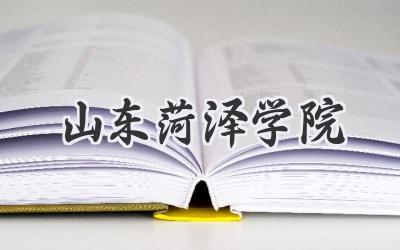 山东菏泽学院